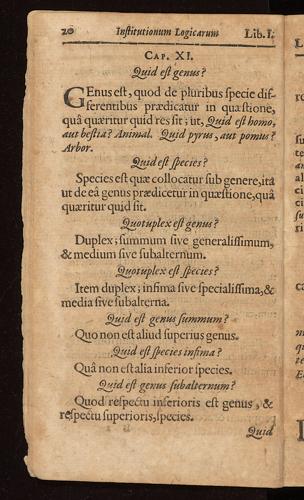 20 Institutionum Logicarum Lib. I.
CAP. XI.
Quid est genus?
GEnus est, quod de pluribus specie dif-
ferentibus prædicatur in quæstione,
quâ quæritur quid res sit; ut, Quid est homo,
aut bestia? Animal. Quid pyrus, aut pomus?
Arbor.
Quid est species?
Species est quæ collocatur sub genere, ita
ut de eâ genus prædicetur in quæstione, quâ
quæritur quid sit.
Quotuplex est genus?
Duplex; summum sive generalissimum,
& medium sive subalternum.
Quotuplex est species?
Item duplex; infima sive specialissima, &
media sive subalterna.
Quid est genus summum?
Quo non est aliud superius genus.
Quid est species infima?
Quâ non est alia inferior species.
Quid est genus subalternum?
Quod respectu inferioris est genus, &
respectu superioris, species.
Quid